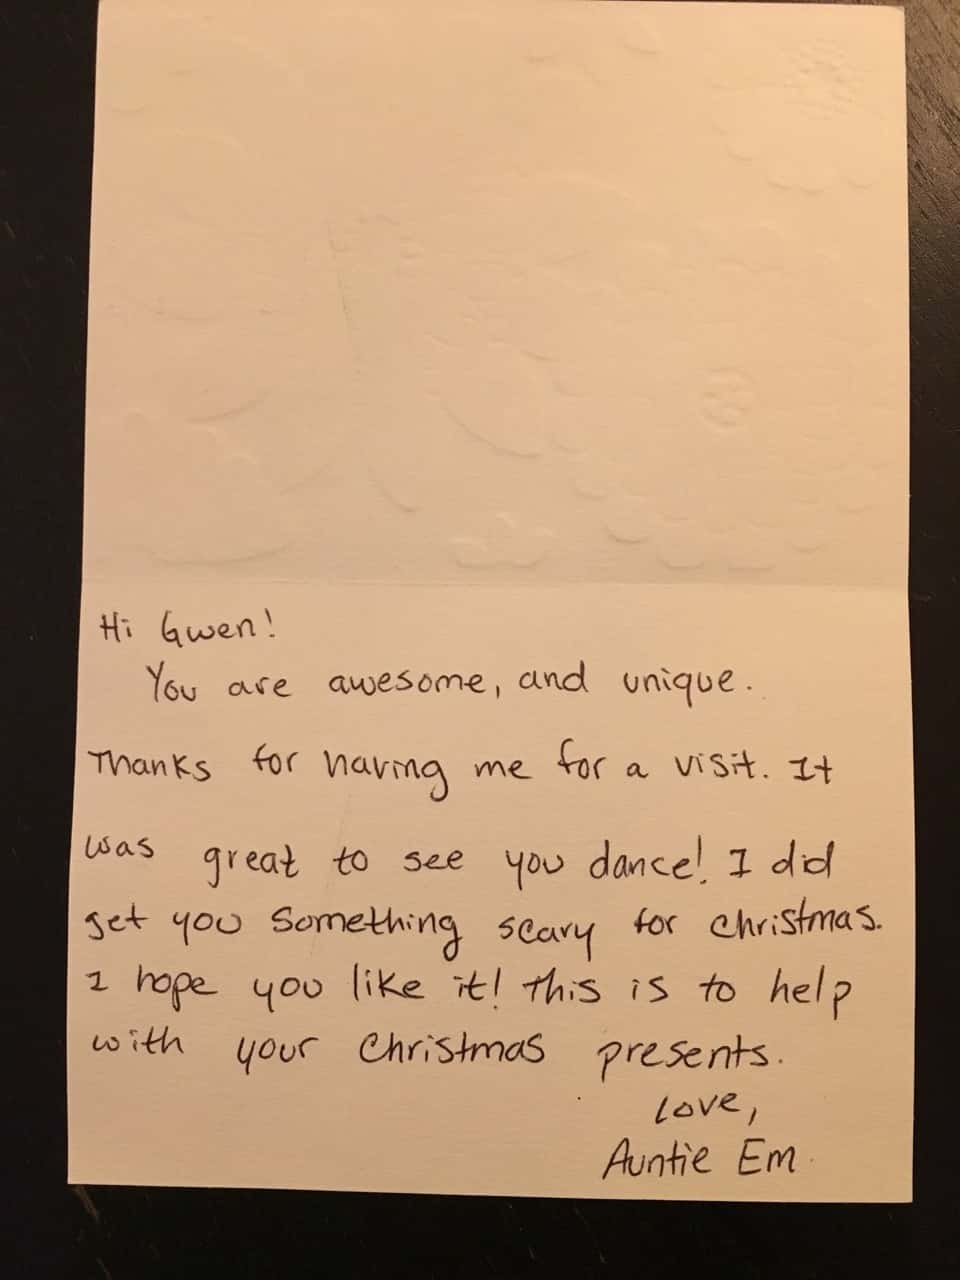 Hi Gwen!
You are awesome, and unique.
Thanks for having me for a visit. It
was great to see you dance! I did
get you something scary for Christmas.
I hope you like it! This is to help
with your Christmas presents.
Love,
Auntie Em